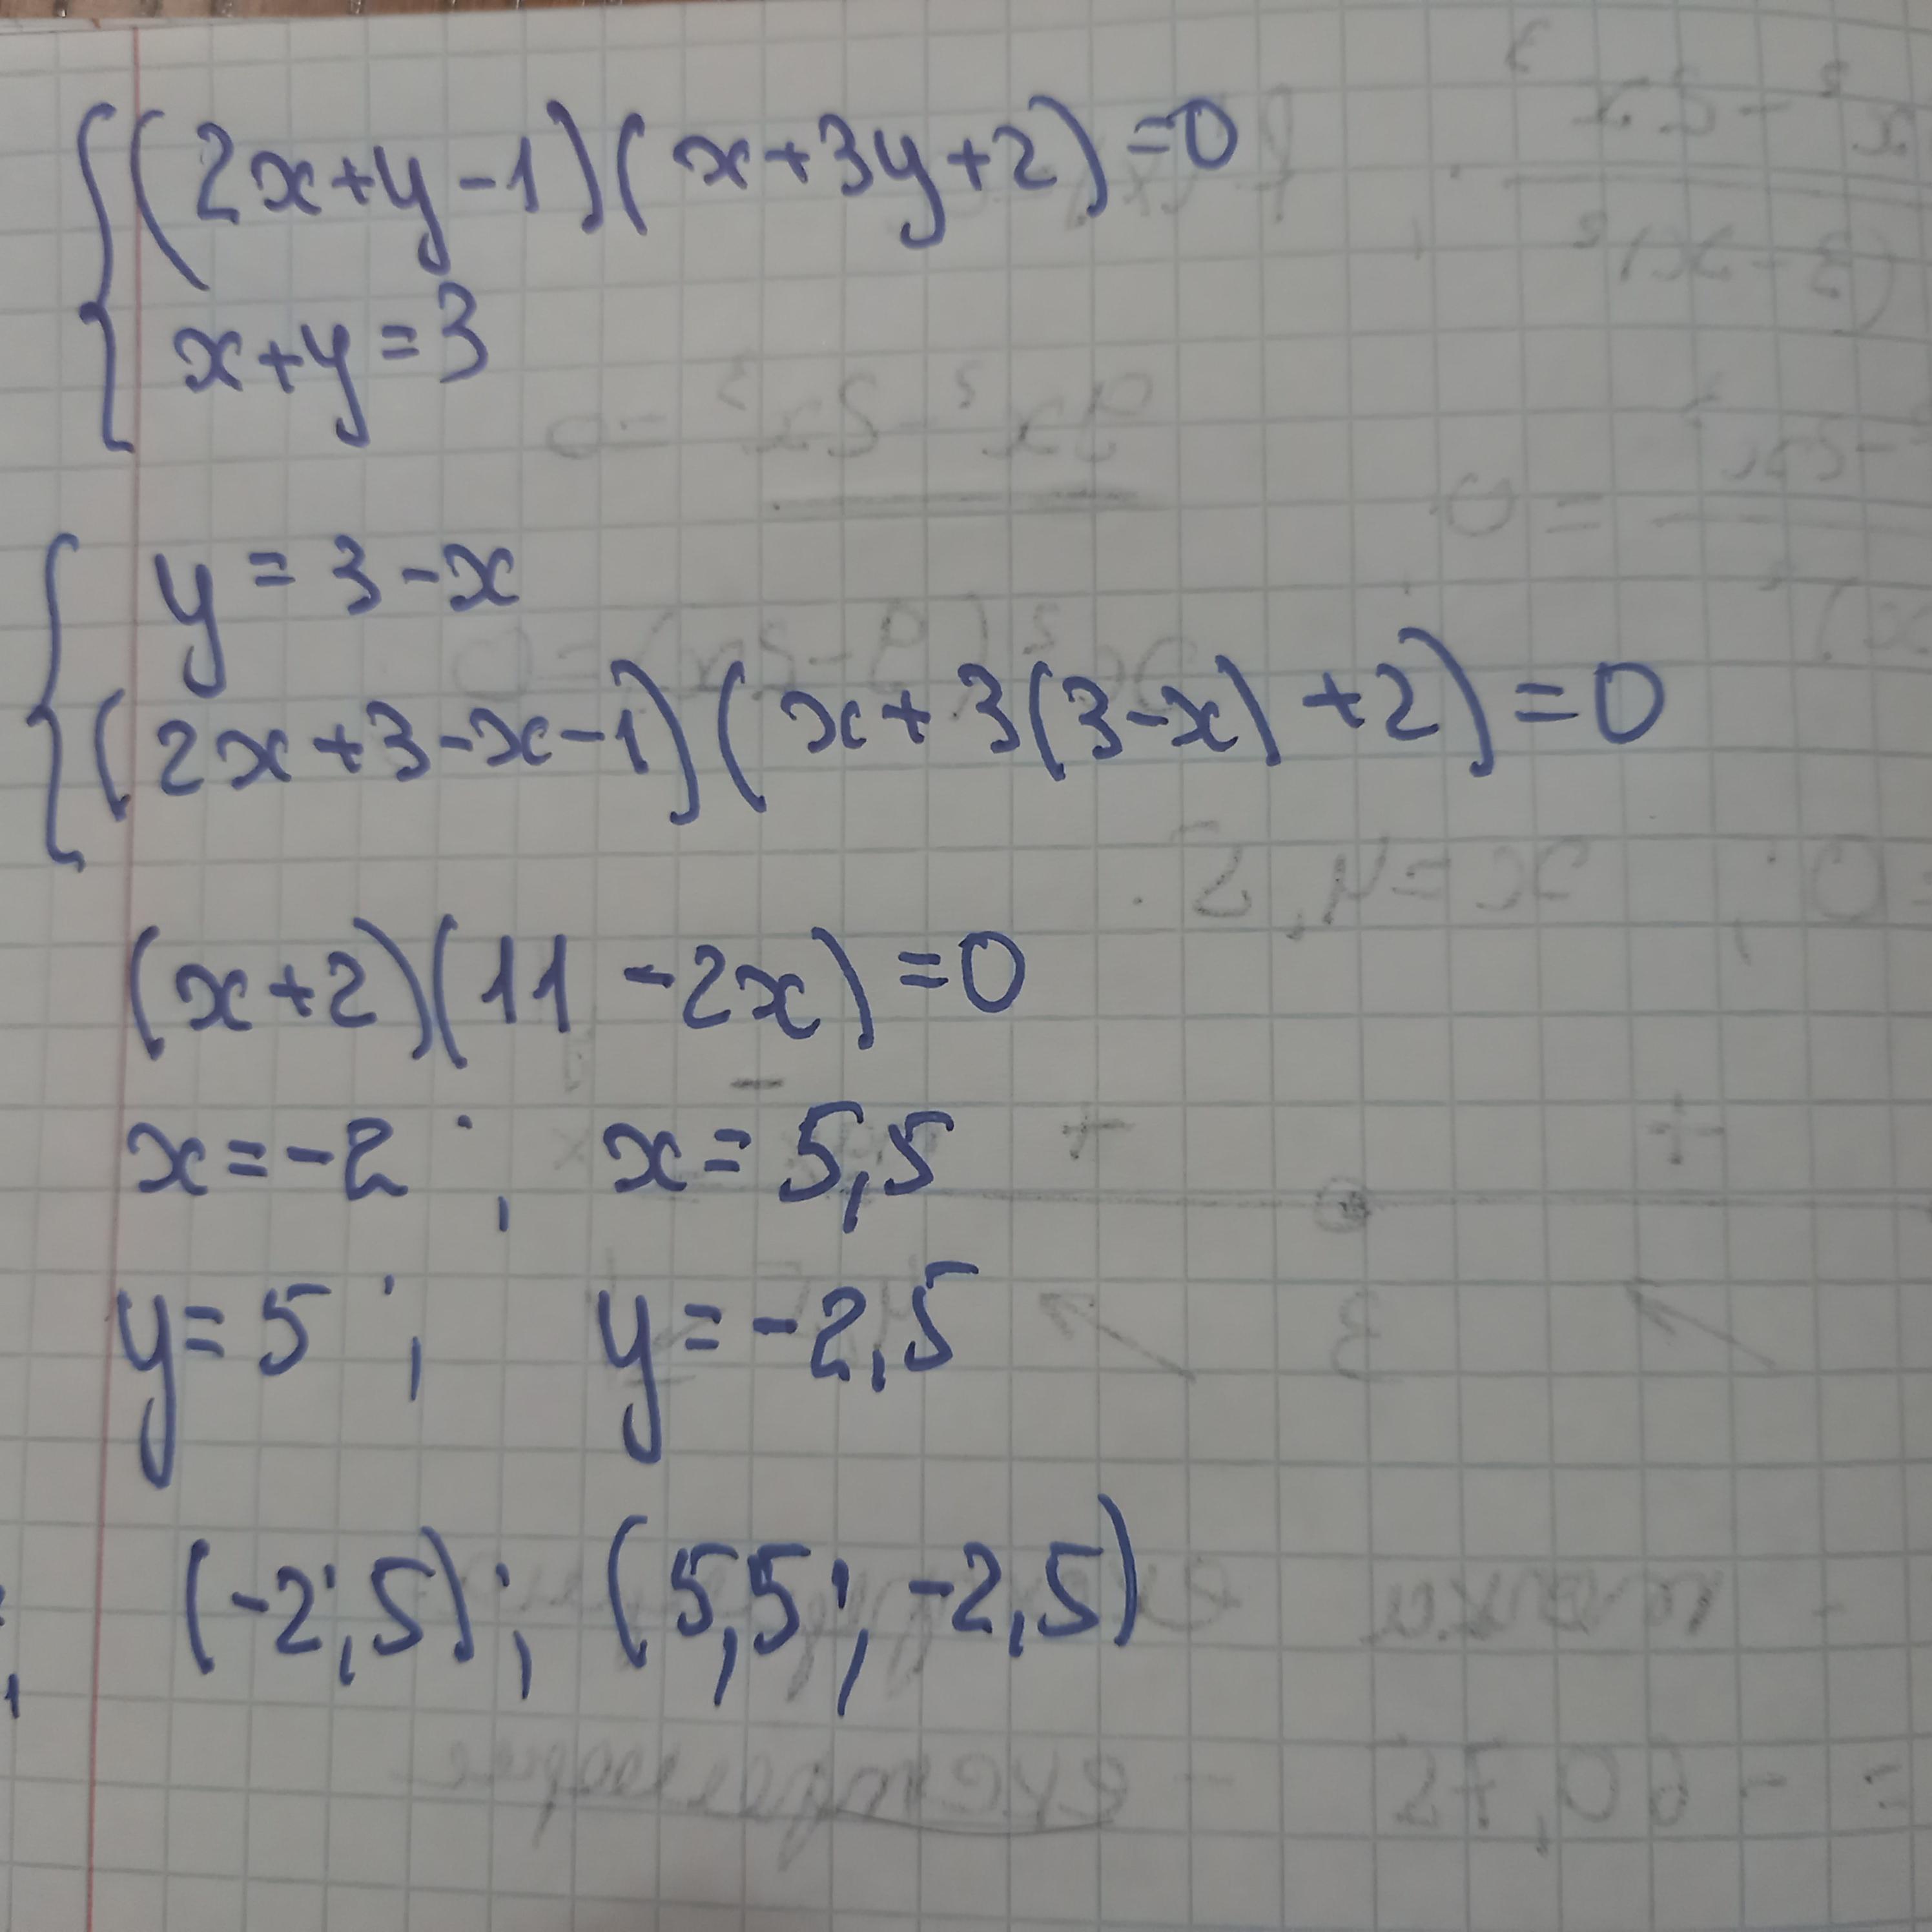 (2x+y-1)(x+3y+2)=0
x+y=3
y=3-x
(2x+3-x-1)(x+3(3-x)+2)=0
(x+2)(11-2x)=0
x=-2; x=5,5
y=5; y=-2,5
(-2;5); (5,5; -2,5)